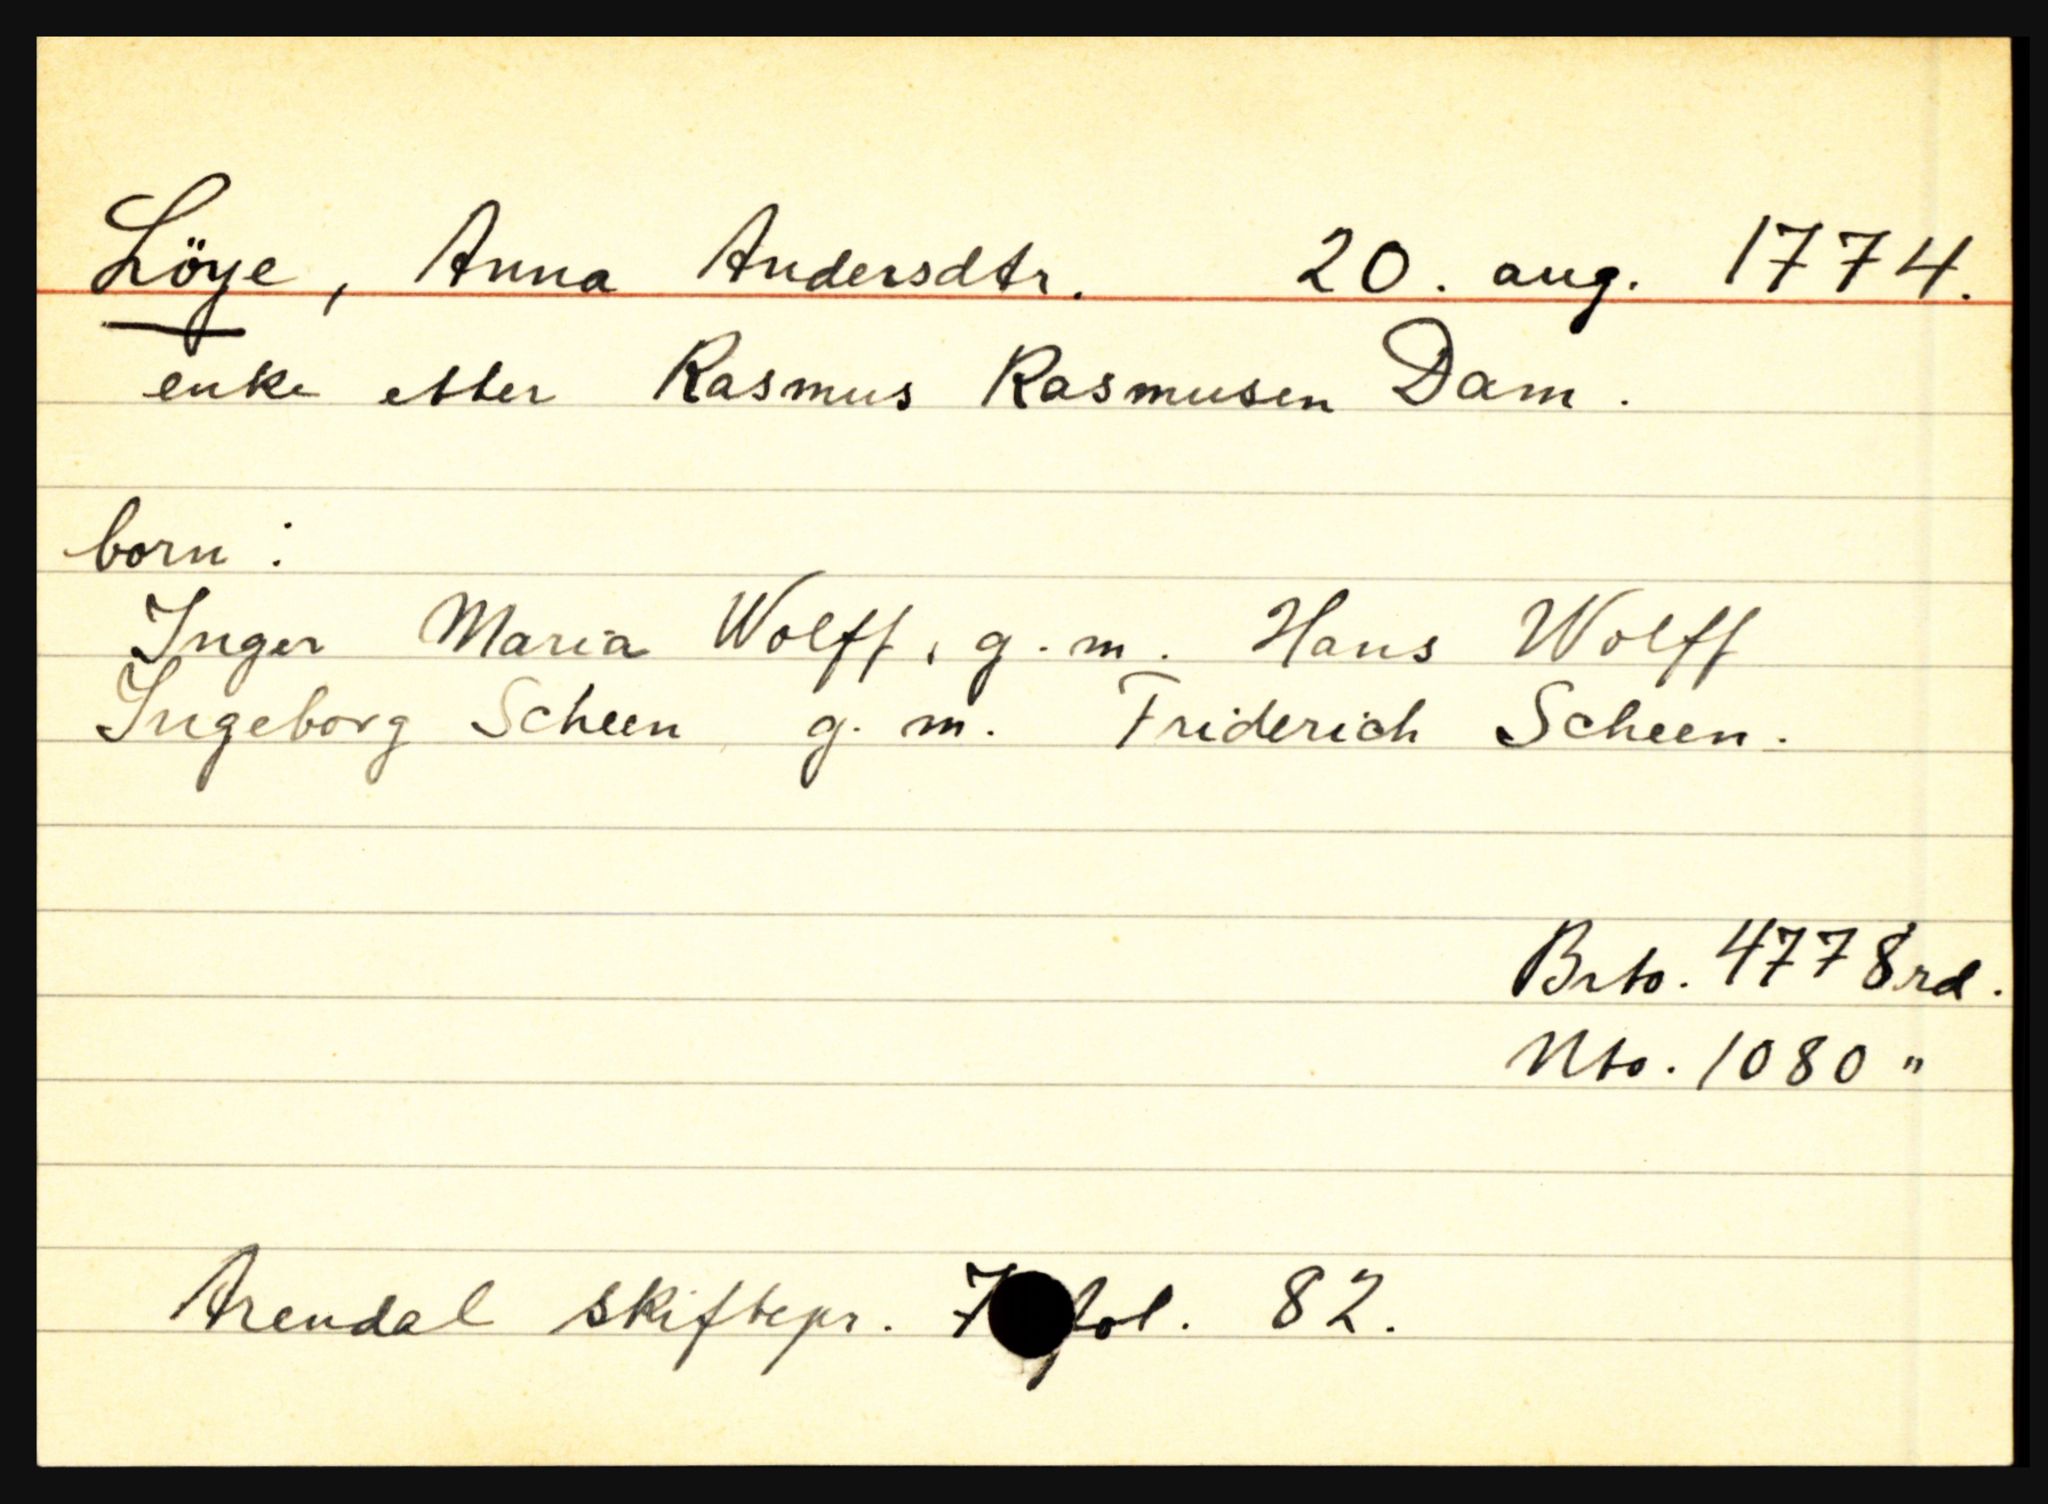 Löye, Anna Andersdtr. 20. aug. 1774.
enke etter Rasmus Rasmusen Dam.
born:
Inger Maria Wolff, g.m. Hans Wolff
Ingeborg Scheen g.m. Friderich Scheen.
Brto. 4778 rd.
Nto. 1080 "
Arendal skiftepr. 7 fol. 82.